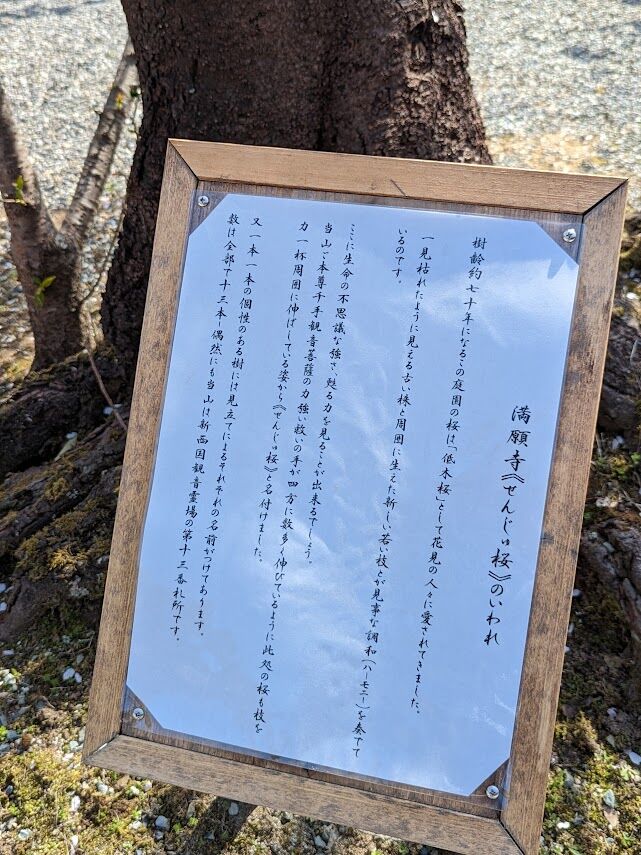 満願寺《せんじゅ桜》のいわれ
樹齢約七十年になるこの庭園の桜は「低木桜」として花見の人々に愛されてきました。
一見枯れたように見える古い株と周囲に生えた新しい若い枝とが見事な調和(ハーモニー)を奏でて
いるのです。
ここに生命の不思議な強さ、甦る力を見ることが出来るでしょう。
当山ご本尊千手観音菩薩の力強い救いの手が四方に数多く伸びているように此処の桜も枝を
力一杯周囲に伸ばしている姿から《せんじゅ桜》と名付けました。
又一本一本の個性のある樹には見立てによるそれぞれの名前がつけてあります。
数は全部で十三本偶然にも当山は新西国観音霊場の第十三番札所です。